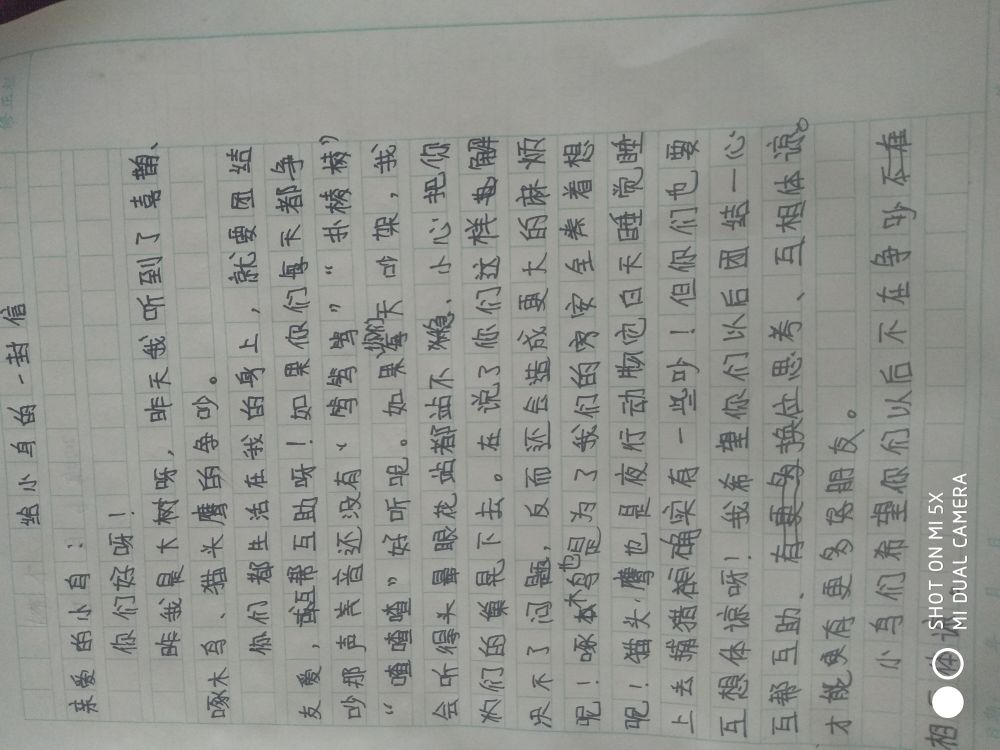 给小鸟的一封信
亲爱的小鸟：
你们好呀！
昨我是大树呀，昨天我听到了喜鹊、
啄木鸟、猫头鹰的争吵。
你们都生活在我的身上，就要团结
友爱，互帮互助呀！如果你们每天都争
吵那声美音还没有、“驾驾驾”“扑棱棱”
“喳喳喳”好听呢。如果你们天天吵架，我
会听得头晕眼花站都站不稳、小心把你
们的巢晃下去。在说了你们这样也解
决不了问题，反而还会造成更大的麻烦
呢！啄木鸟也是为了我们的安全着想
呢！猫头鹰也是夜行动物它白天睡觉睡
上去确实有一些吵！但你们也要
互想体谅呀！我希望你们以后团结一心
互帮互助、换位思考、互相体谅。
才能有更多朋友。
小鸟们希望你们以后不在争吵
相
SHOT ON MI 5X
MI DUAL CAMERA